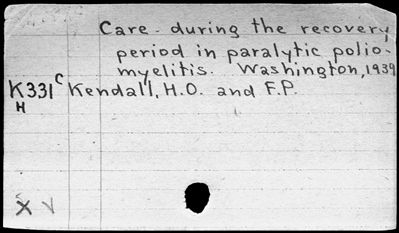 Care - during the recovery
period in paralytic polio-
myelitis. Washington, 1939
K331 C Kendall, H.O. and F.P.
H
X V